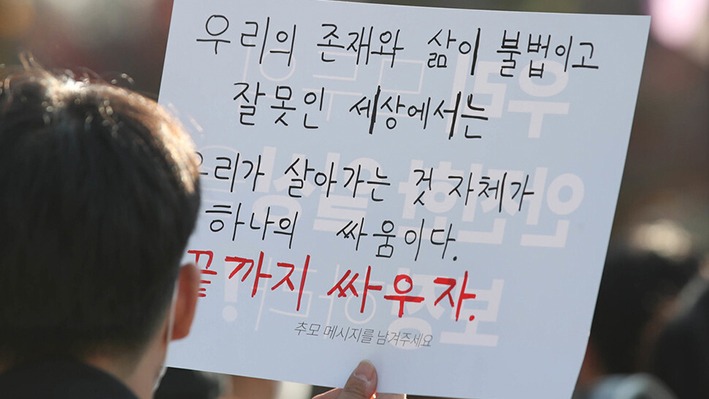 우리의 존재와 삶이 불법이고
잘못인 세상에서는
우리가 살아가는 것 자체가
하나의 싸움이다.
끝까지 싸우자.
추모 메시지를 남겨주세요